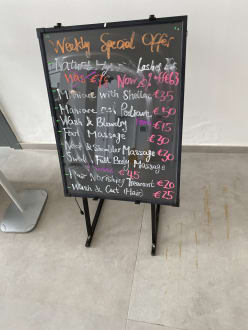 Weekly Special Offer
Natural Lasting
Was Now
Manicure with Shellac €35
Manicure and Pedicure €50
Wash & Blowdry €15
Foot Massage €30
Neck & Shoulder Massage €30
Full Body Massage
€45
Hair Nourishing Treatment €20
Wash & Cut (Hair) €25